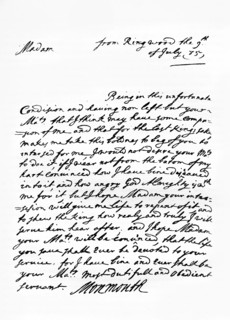 Madam
from Ringwood the 9th
of July 85
Being in this unfortunate
Condition and having non left but your
Ma.tie that I think may have some compa-
sion of me, and that for the last Kings sake
make me take this boldnes to beg of you to
intersed for me. I would not desire your Ma.tie
to doe it if I wear not from the botom of my
hart convinced how I have bine disceaved
into it and how angry God Almighty is with
me for it but I hope Madam your inter-
ssion will give me life to repent of it and
to shew the King how realy and truly I will
serve him hear after, and I hope Madam
your Ma.tie will be convinced that the life
you save shall Ever be devoted to your
service, for I have bine and Ever shall be
your Ma.tie Most dutifull and obedient
servant
Monmouth